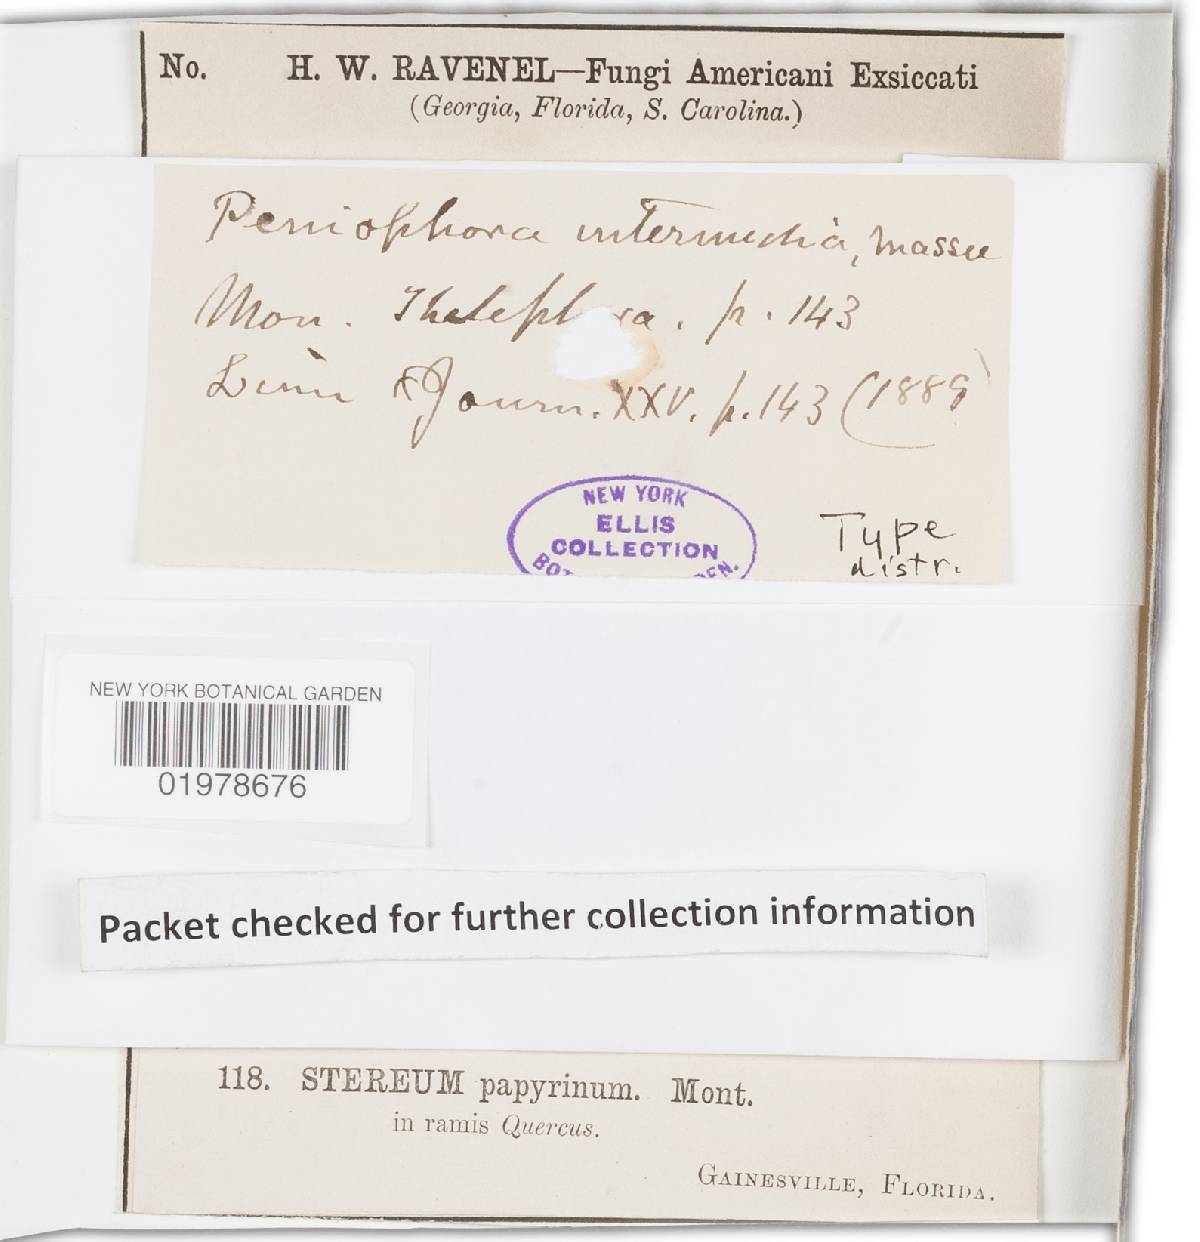 No. H. W. RAVENEL—Fungi Americani Exsiccati
(Georgia, Florida, S. Carolina.)
Peniophora intermedia, Massee
Mon. Theleph ra. p. 143
Linn Journ. XXV. p. 143 (1889)
NEW YORK
ELLIS
COLLECTION
Type
distr.
NEW YORK BOTANICAL GARDEN
01978676
Packet checked for further collection information
118. STEREUM papyrinum. Mont.
in ramis Quercus.
GAINESVILLE, FLORIDA.